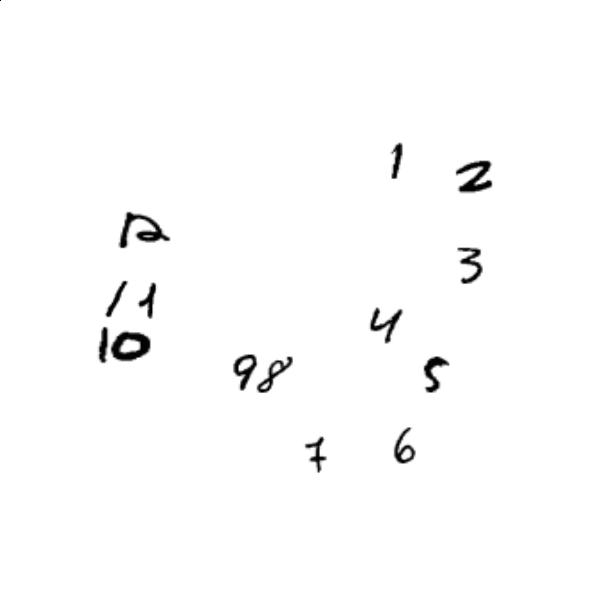 1 2
12
3
11
4
10
98 5
7 6